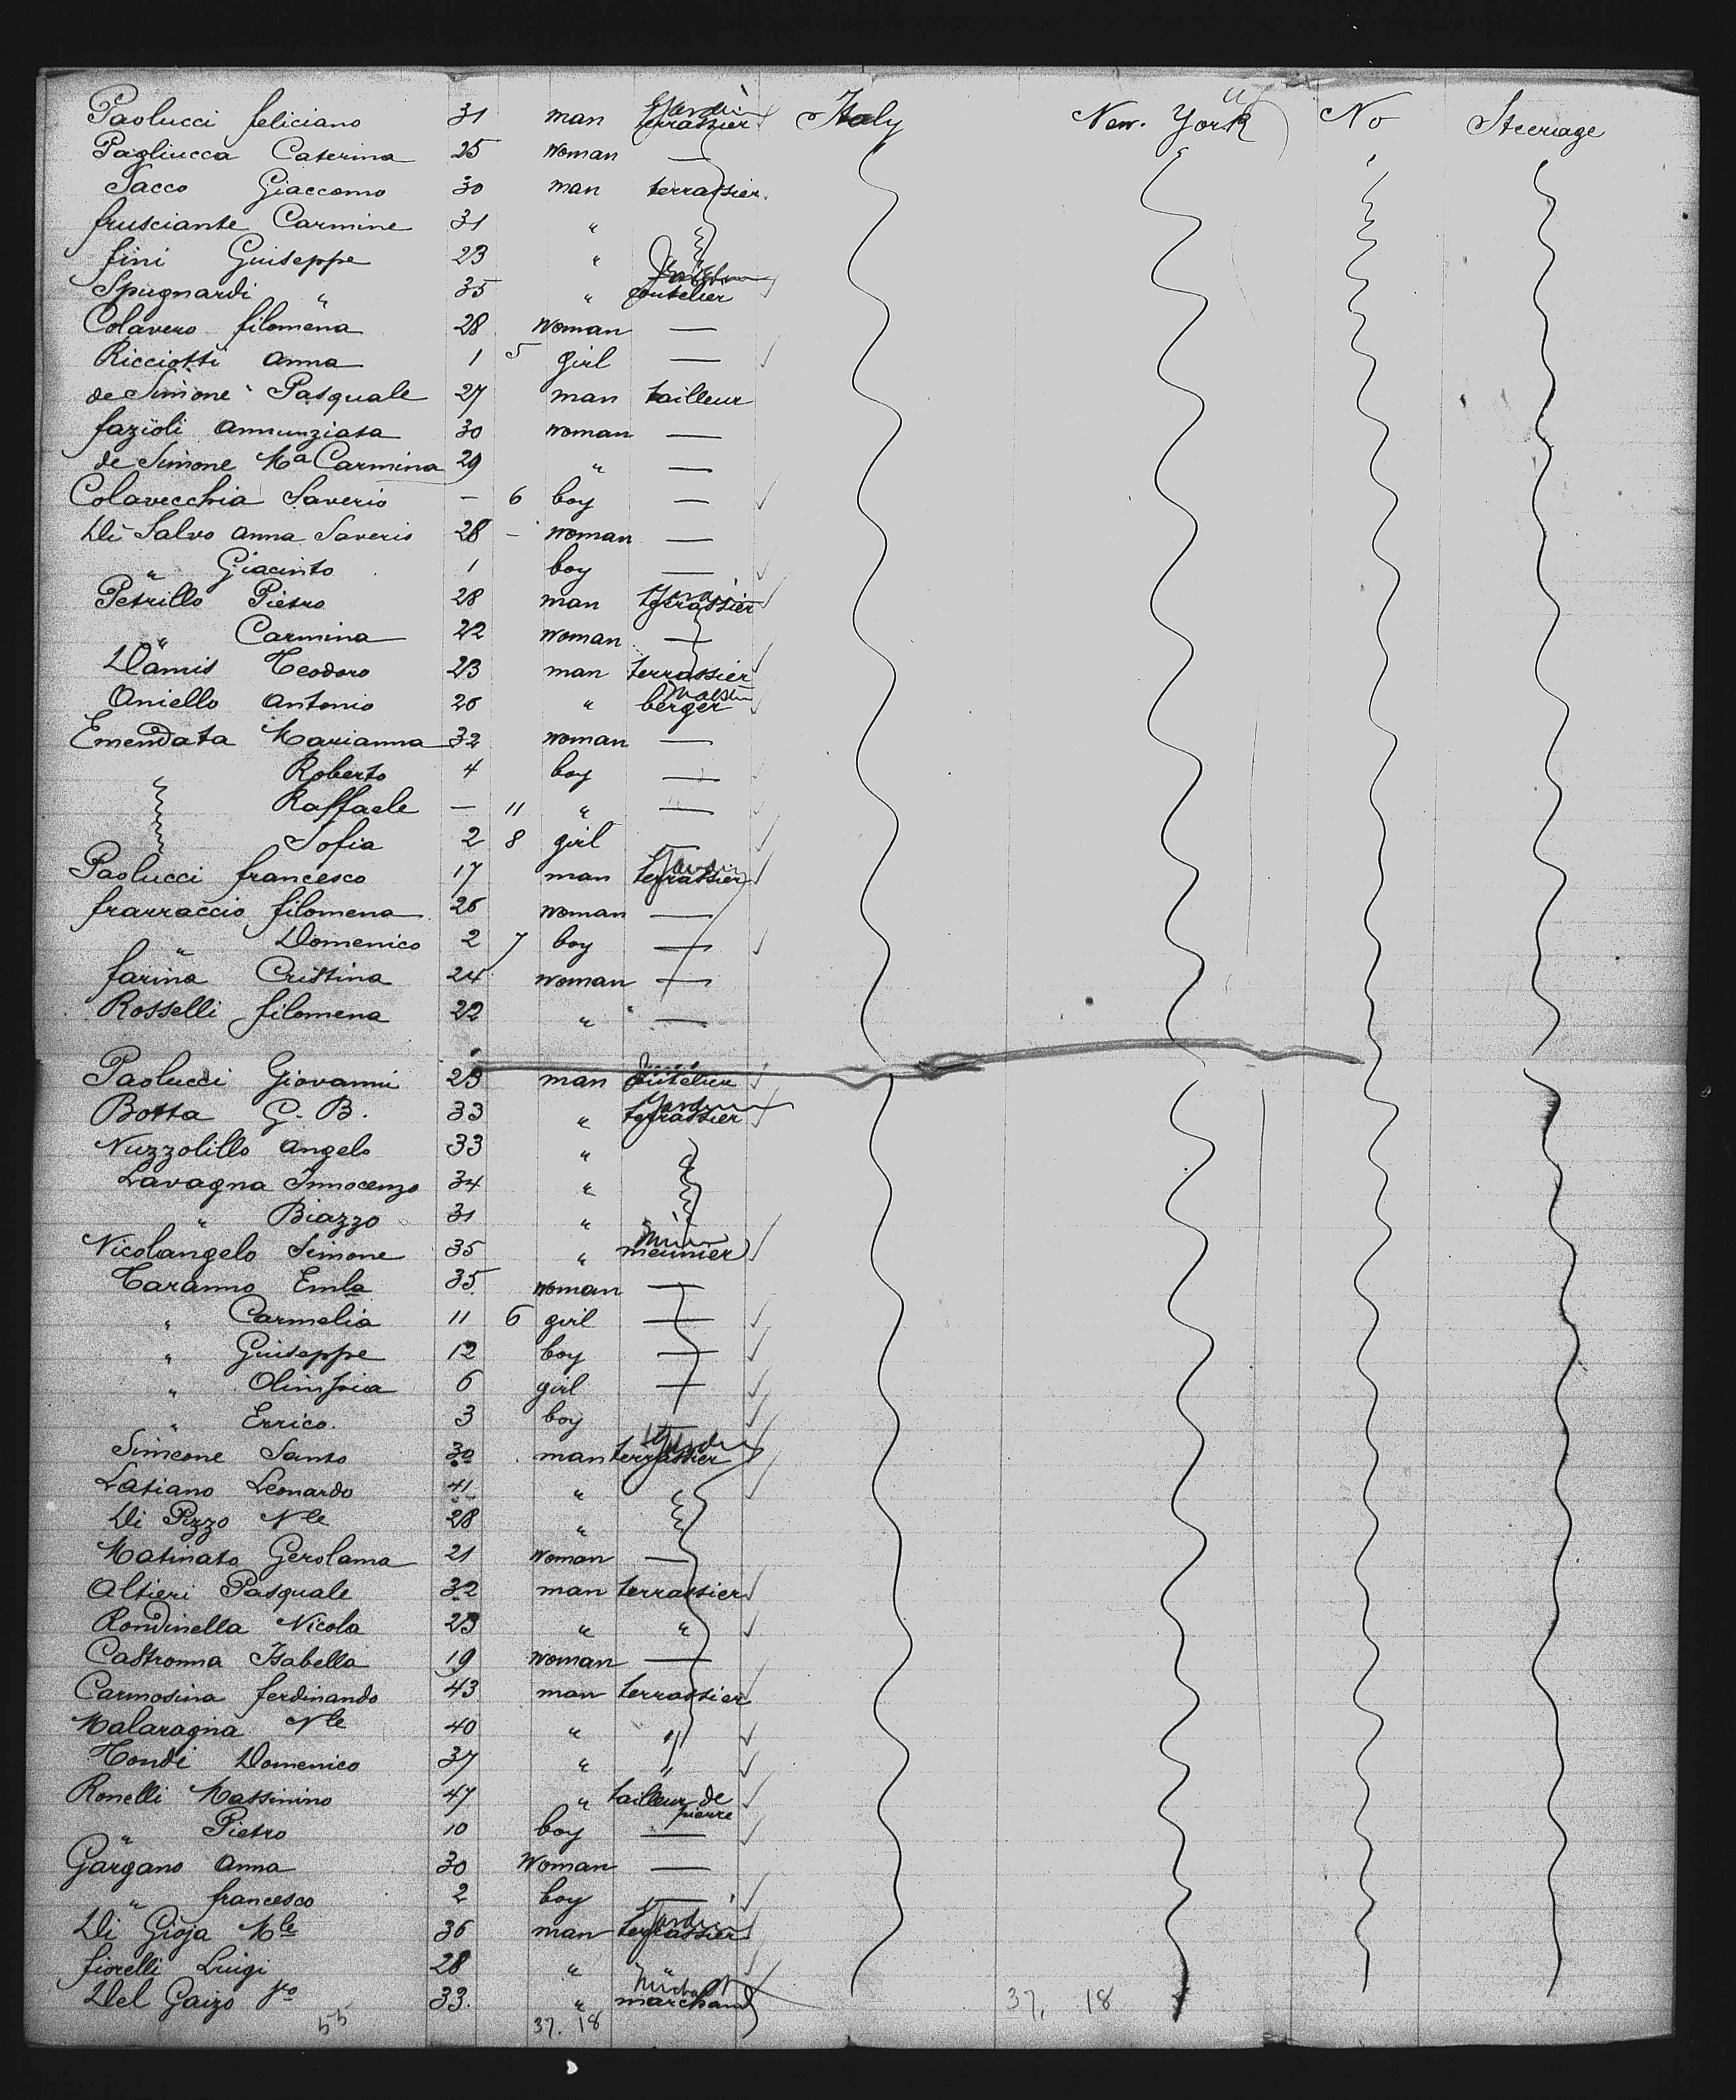 Paolucci feliciano 31 man terrassier Italy New. York No Steerage
Pagliucca Caterina 25 woman —
Sacco Giaccomo 30 man terrassier.
frusciante Carmine 31 "
fini Guiseppe 23 "
Spugnardi " 35 " coutelier
Colavero filomena 28 woman —
Ricciotti anna 1 5 girl —
de Simone Pasquale 27 man tailleur
fazioli annunziata 30 woman —
de Simone Ma Carmina 29 " —
Colavecchia Saverio — 6 boy —
Di Salvo anna Saveris 28 - woman —
" Giacinto 1 boy —
Petrillo Pietro 28 man terrassier
" Carmina 22 woman —
Damis Teodoro 23 man terrassier
Aniello Antonio 26 " berger
Emendata Marianna 32 woman —
Roberto 4 boy —
Raffaele — 11 " —
Sofia 2 8 girl —
Paolucci francesco 17 man terrassier
frarraccio filomena 26 woman —
" Domenico 2 7 boy —
farina Cristina 24 woman —
Rosselli filomena 22 " —
Paolucci Giovanni 23 man coutelier
Botta G. B. 33 " terrassier
Nuzzolillo angelo 33 "
Lavagna Innocenzo 34 "
" Biazzo 31 "
Nicolangelo Simone 35 " meunier
Taranno Emla 35 woman —
" Carmelia 11 6 girl —
" Guiseppe 12 boy —
" Olimpia 6 girl —
" Errico. 3 boy —
Simeone Santo 30 man terrassier
Latiano Leonardo 41 "
Di Pizzo Nle 28 "
Matinato Gerolama 21 woman —
Altieri Pasquale 32 man terrassier
Rondinella Nicola 23 " "
Castronna Isabella 19 woman —
Carmosina ferdinando 43 man terrassier
Malaragna Nle 40 " "
Tondi Domenico 37 " "
Ronelli Massinino 47 " tailleur de pierre
" Pietro 10 boy —
Gargano anna 30 Woman —
" francesco 2 boy —
Di Gioja Mle 36 man terrassier
fiorelli Luigi 28 " "
Del Gaizo fco 33. " marchand
55 37. 18 37. 18